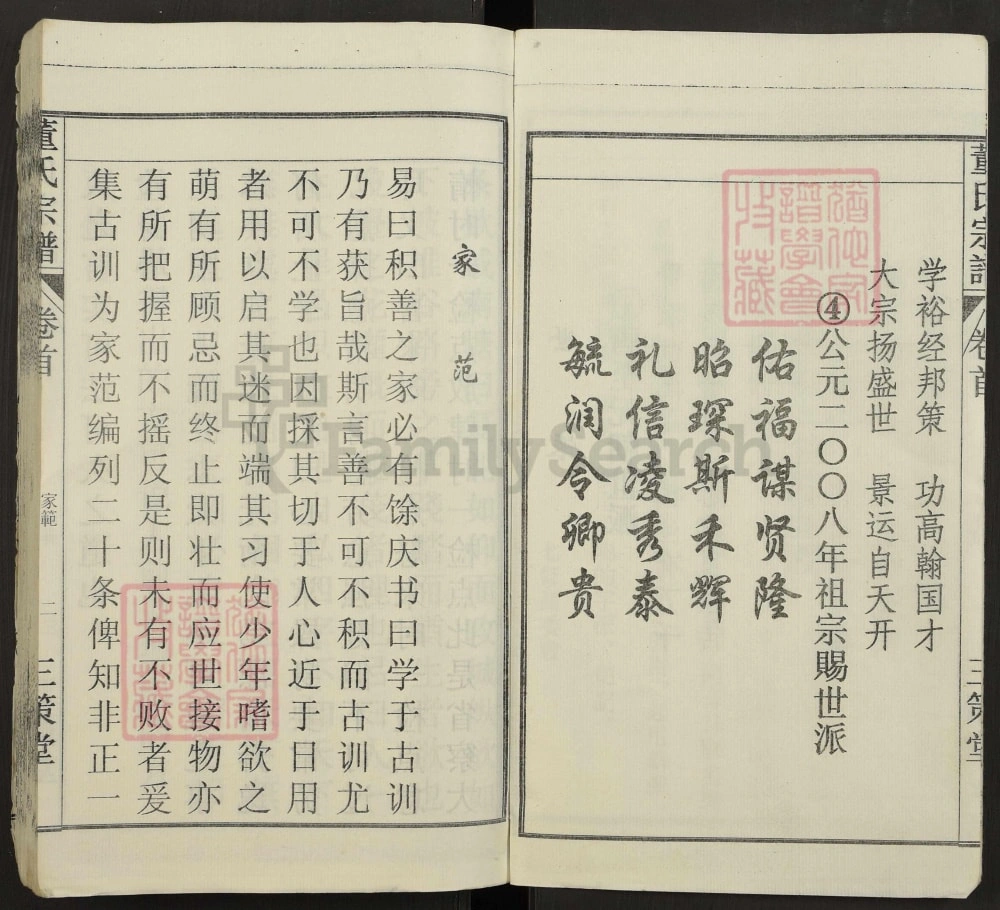 董氏宗譜
卷首
三策堂
学裕经邦策 功高翰国才
大宗扬盛世 景运自天开
④公元二〇〇八年祖宗賜世派
佑福谋贤隆
昭琛斯禾辉
礼信凌秀泰
毓润令卿贵
家范
易曰积善之家必有馀庆书曰学于古训
乃有获旨哉斯言善不可不积而古训尤
不可不学也因採其切于人心近于日用
者用以启其迷而端其习使少年嗜欲之
萌有所顾忌而终止即壮而应世接物亦
有所把握而不摇反是则未有不败者爰
集古训为家范编列二十条俾知非正一
董氏宗譜
卷首
家範
二
三策堂
FamilySearch